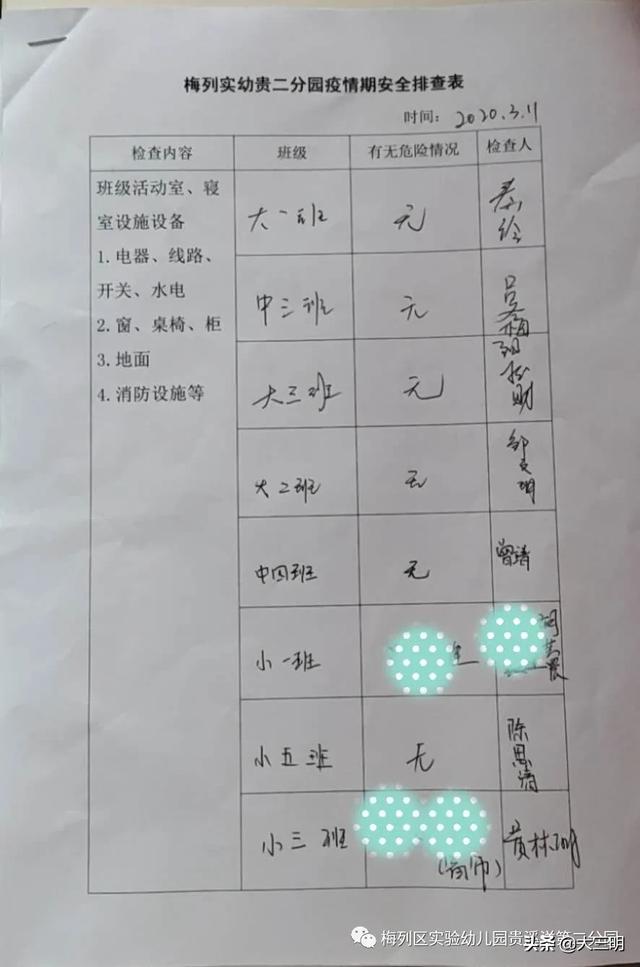 梅列实幼贵二分园疫情期安全排查表
时间: 2020.3.11
检查内容 班级 有无危险情况 检查人
班级活动室、寝
室设施设备
1.电器、线路、
开关、水电
2.窗、桌椅、柜
3.地面
4.消防设施等
大一班 无
中三班 无
大三班 无
大二班 无 邹文明
中四班 无 曾靖
小一班
小五班 无 陈思清
小三班 黄林明
梅列区实验幼儿园贵溪洋第二分园
头条 @大三明